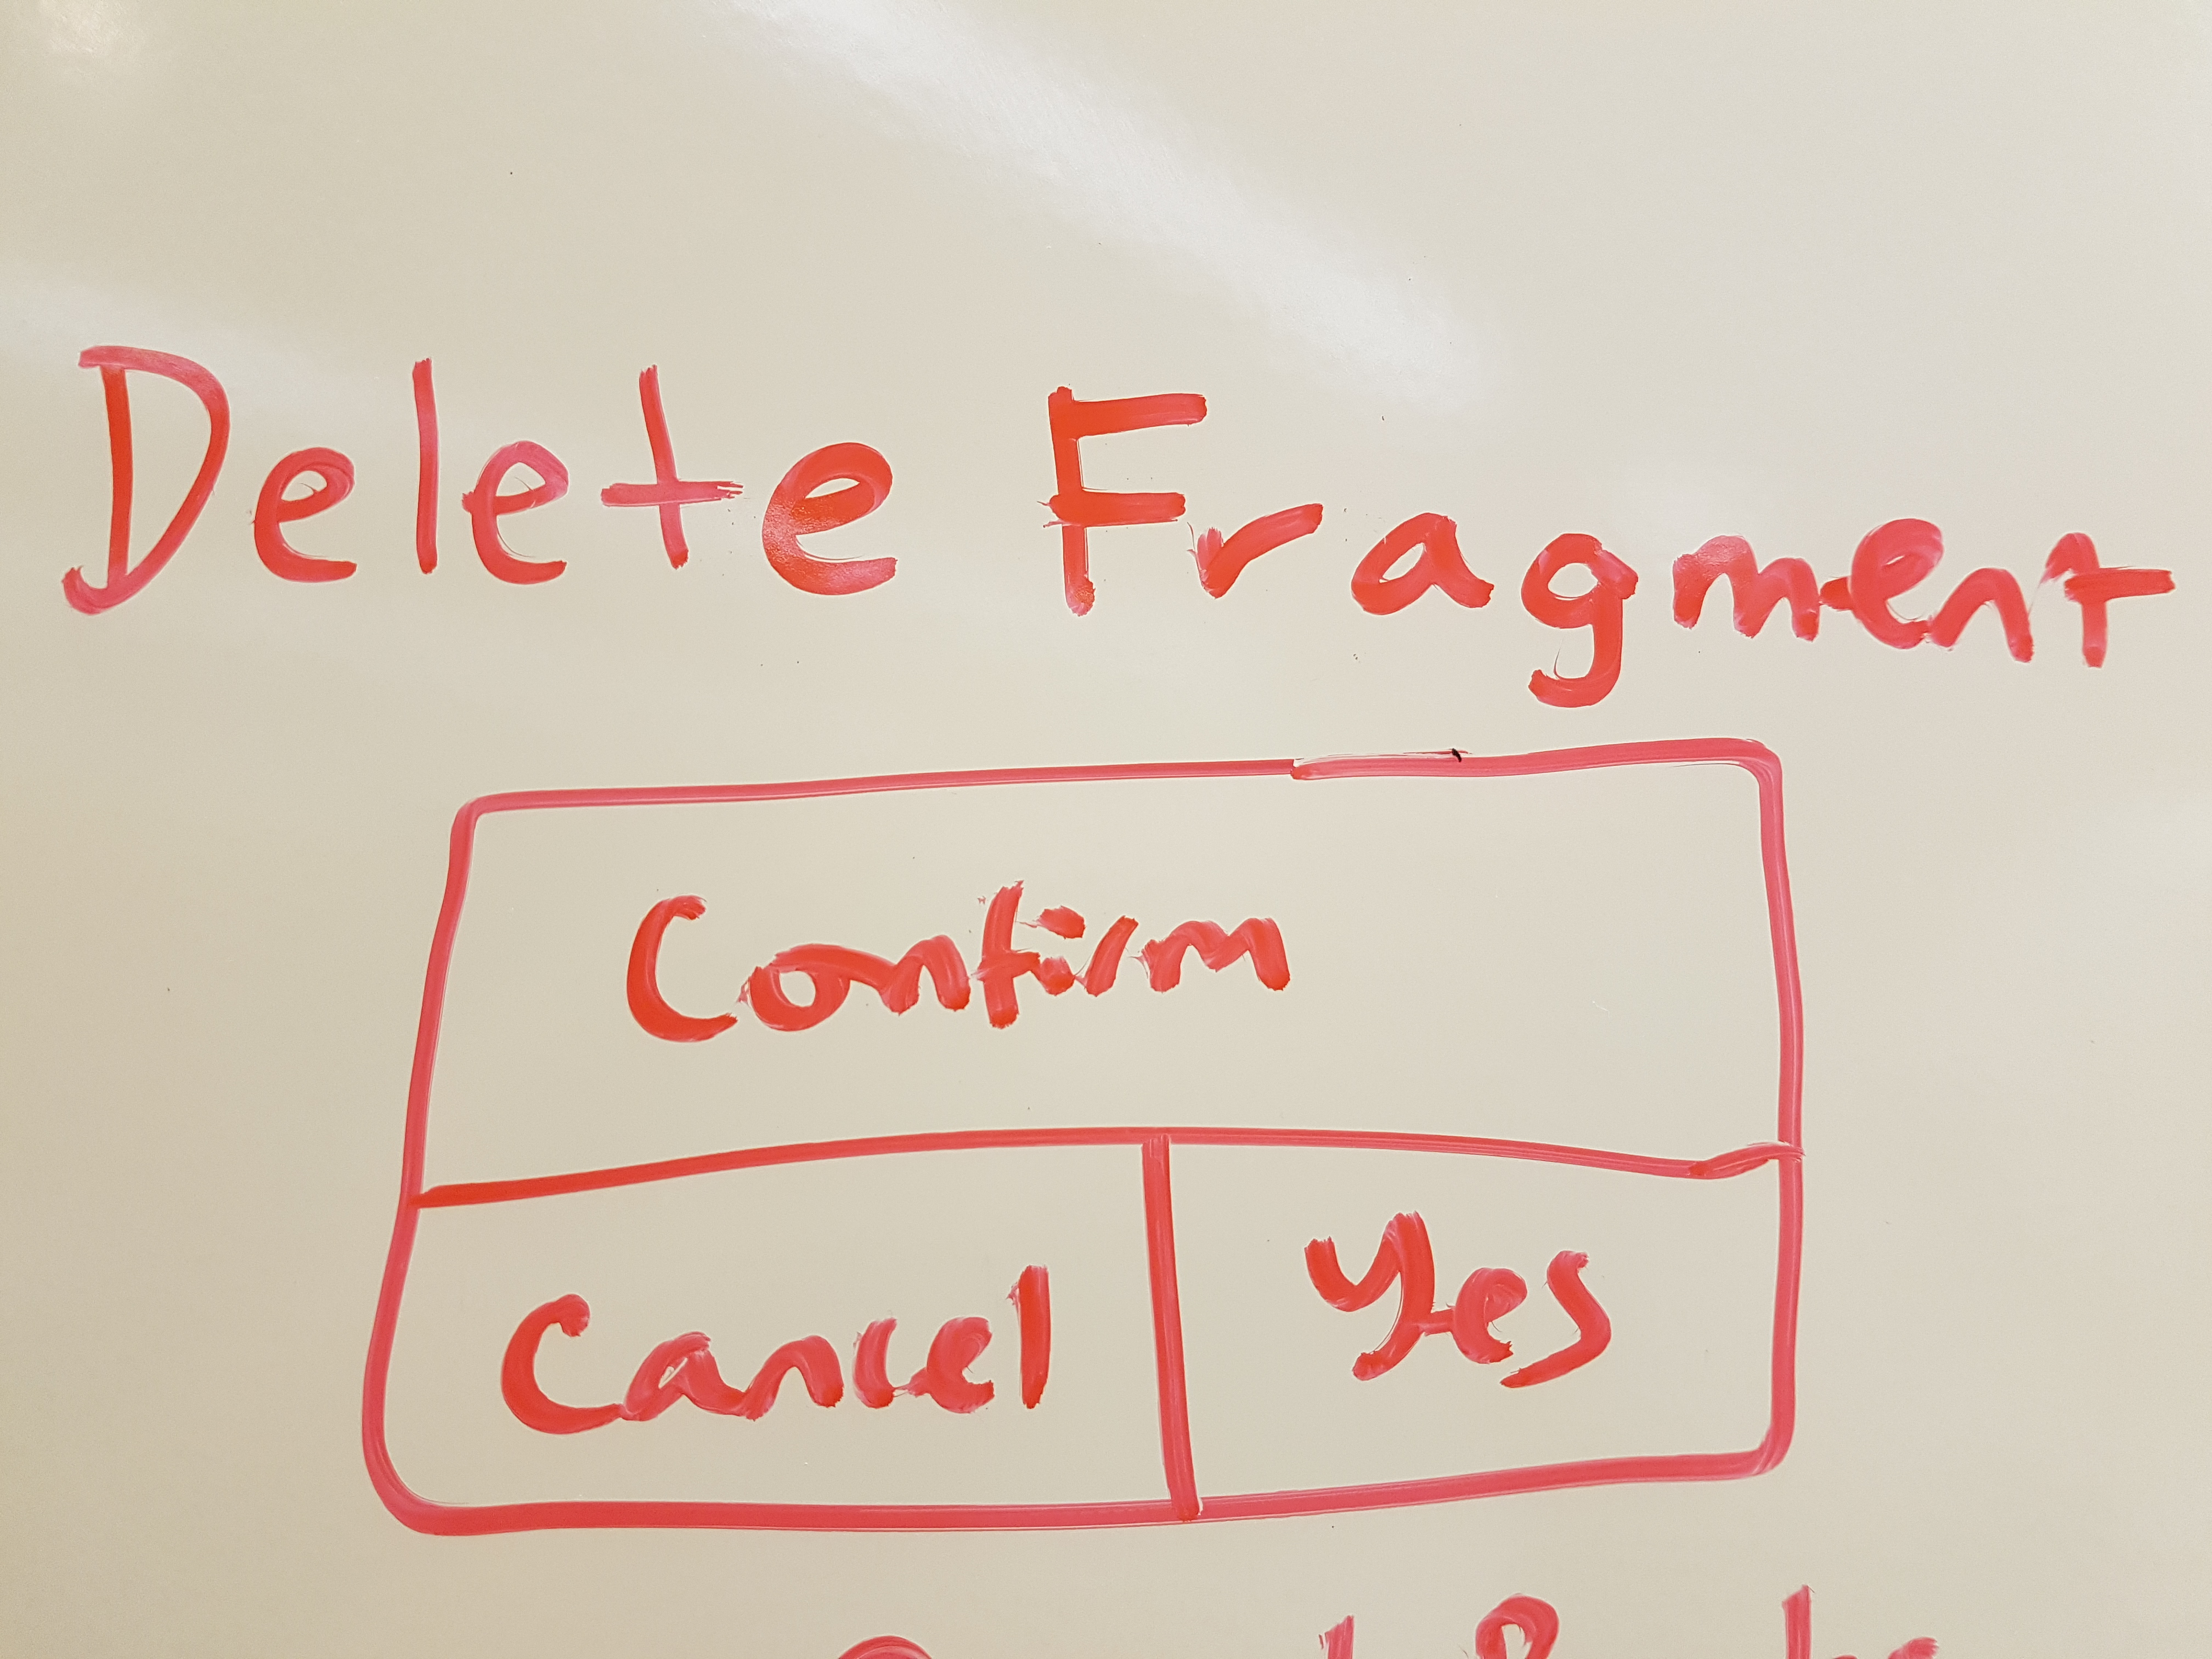 Delete Fragment
Confirm
Cancel Yes